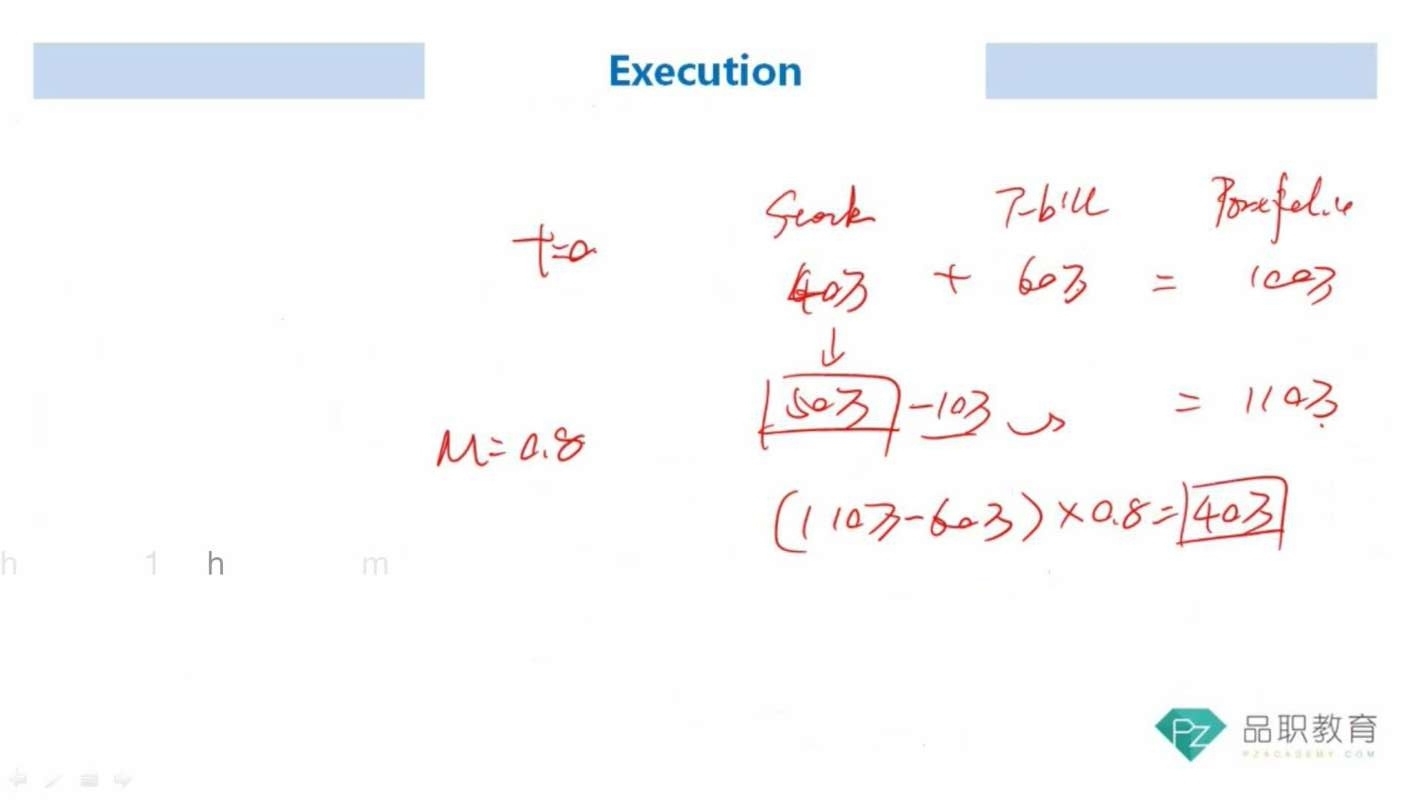 Execution
Stock T-bill Portfolio
t=0
40万 + 60万 = 100万
↓
50万 -10万 = 110万
M=0.8
(110万-60万)×0.8=40万
h 1 h m
Pz 品职教育
PZACADEMY.COM